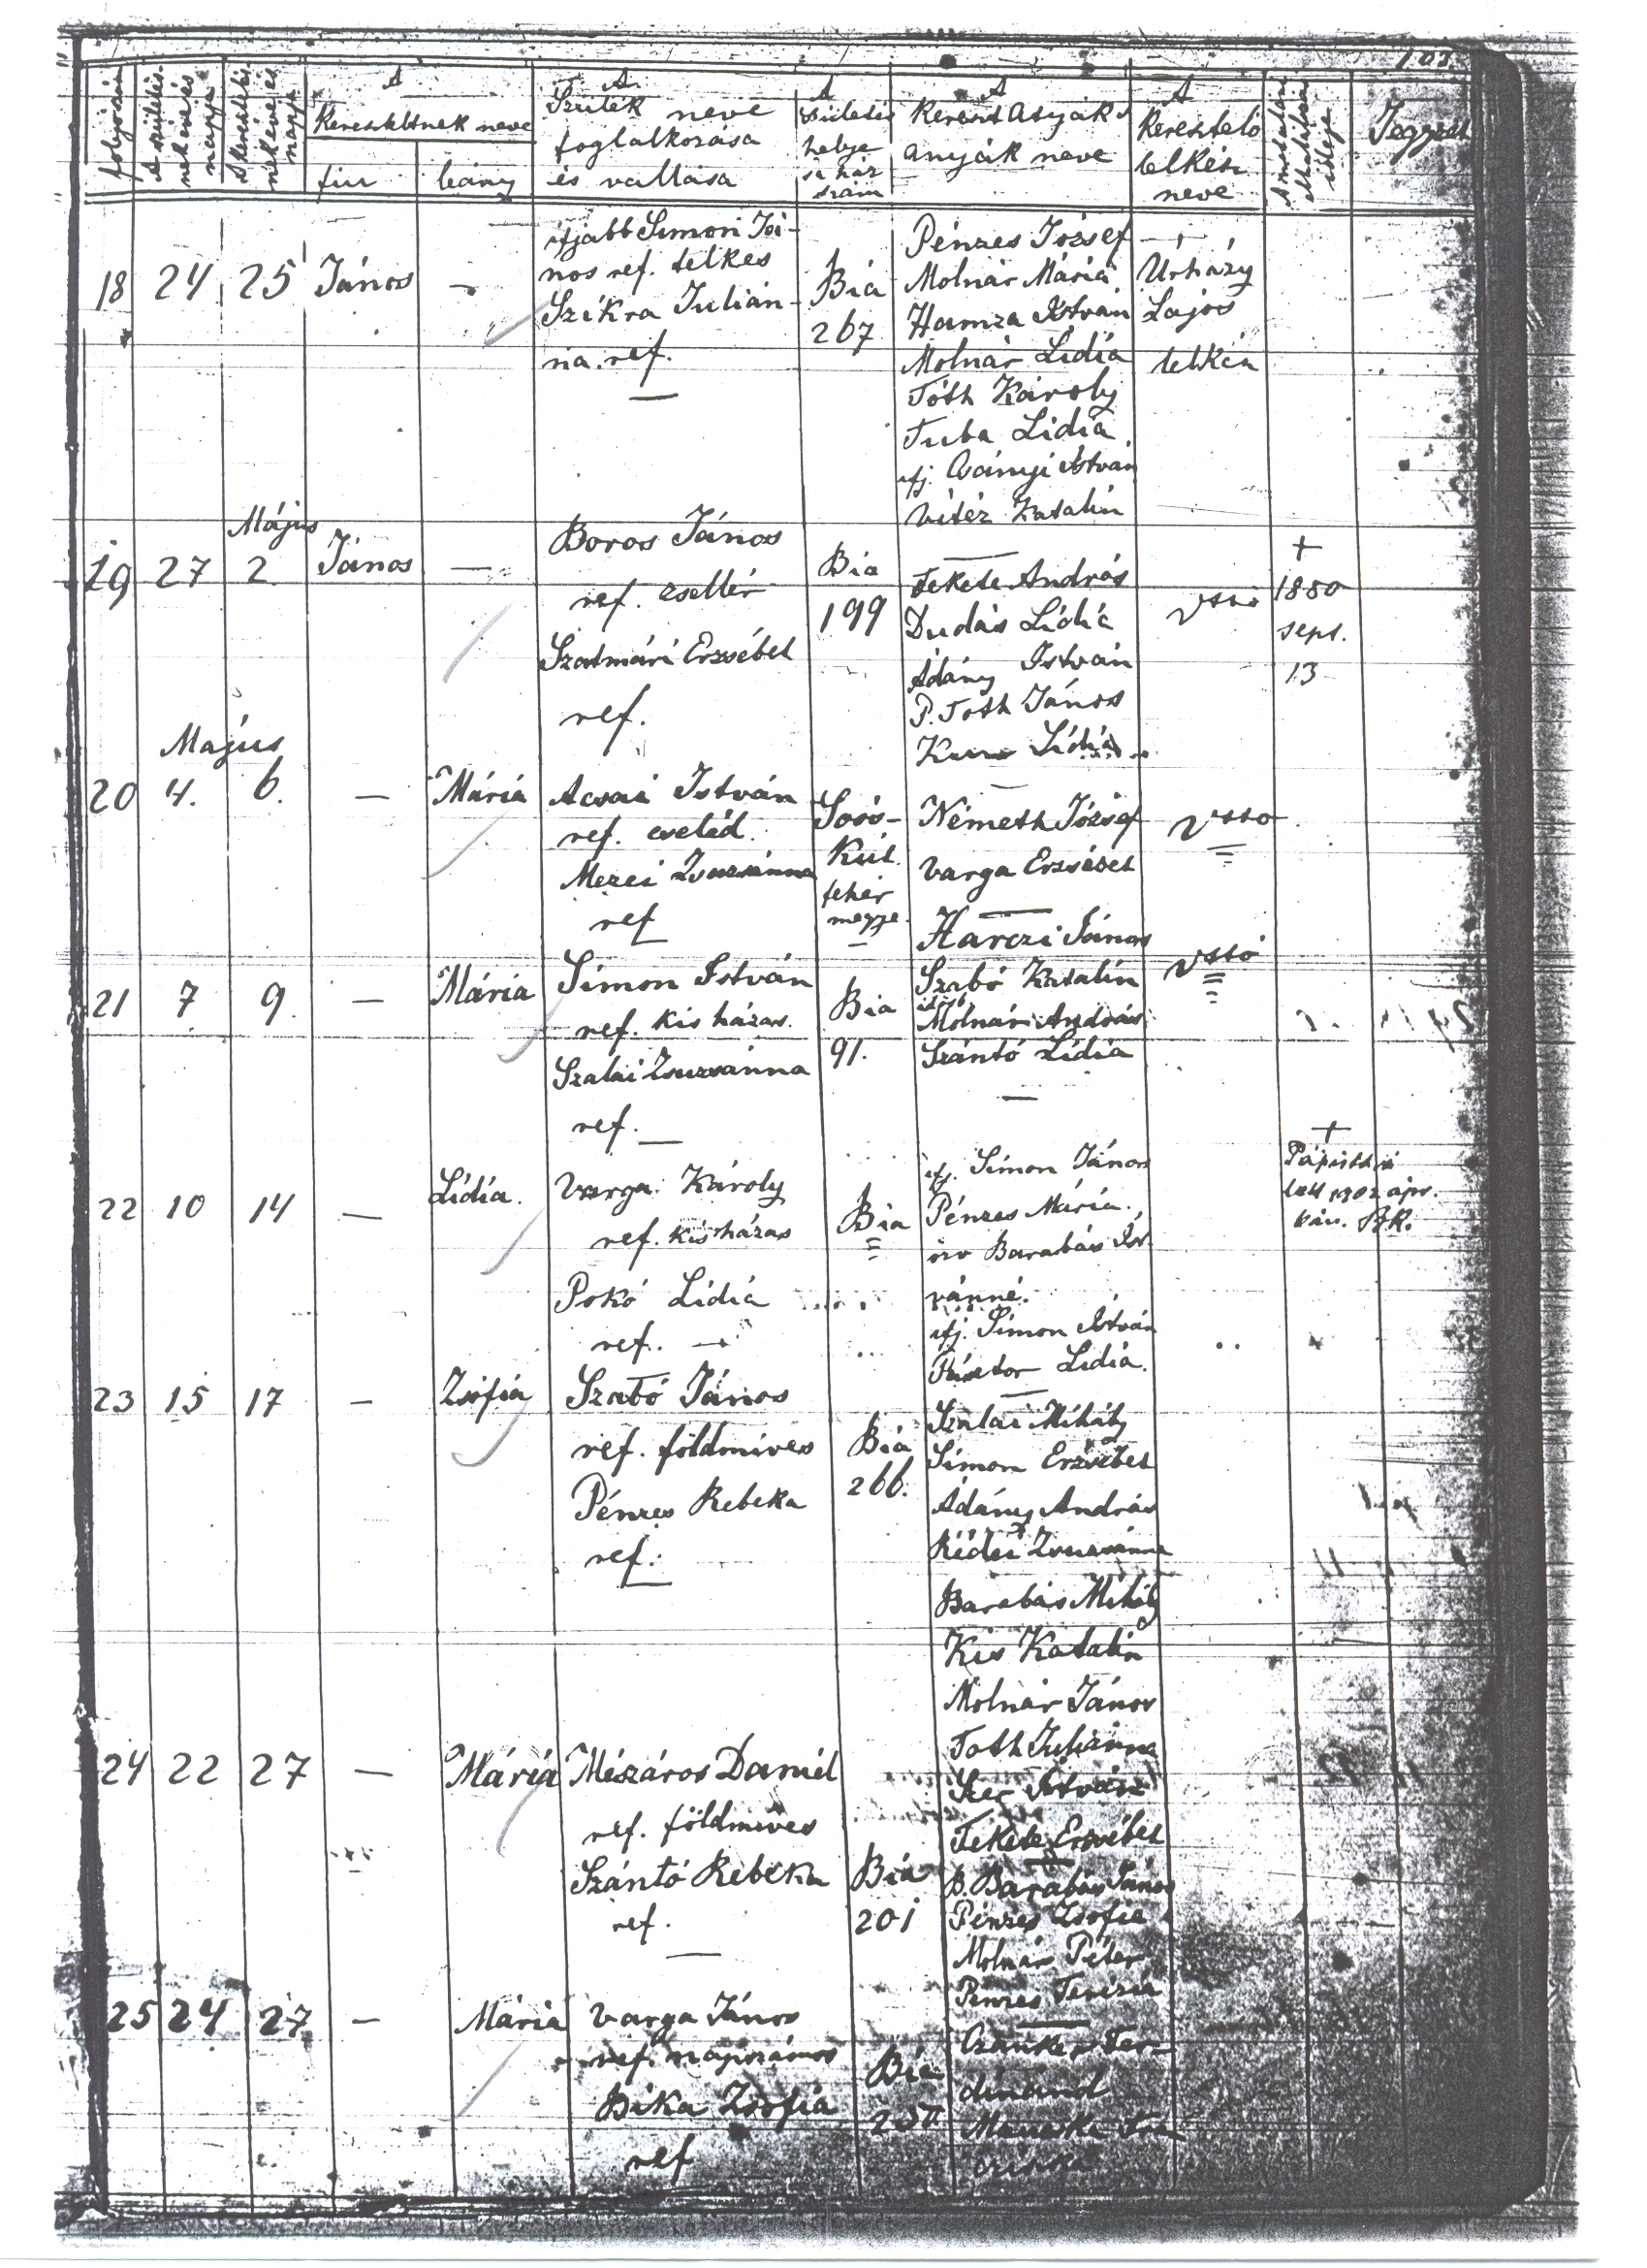 folyószám
A születésnek éve és napja
A keresztelésnek éve és napja
A Kereszteltnek neve
fiu
leány
A Szülék neve foglalkozása és vallása
A születés helye s ház szám
A Kereszt Atyák s anyák neve
A Keresztelő lelkész neve
Jegyzet
18 24 25 János —
ifjabb Simon Já-
nos ref. telkes
Szikra Julián-
na. ref.
Bia
267
Pénzes József
Molnár Mária
Hamza István
Molnár Lidia
Tóth Károly
Tuba Lidia
ifj. Csányi István
Vitéz Katalin
Urházy
Lajos
lelkész
Május
19 27 2. János —
Boros János
ref. zsellér
Szatmári Erzsébet
ref.
Bia
199
Fekete András
Dudás Lidia
Adány István
P. Toth János
Lidia
+
1880
sept.
13
Május
20 4. 6. — Mária
Acsai István
ref. cseléd.
Mezei Zsuzsánna
ref
Soós-
Kút.
fehér
megye.
Németh József
Varga Erzsébet
21 7 9. — Mária
Simon István
ref. kis házas.
Szalai Zsuzsánna
ref.
Bia
91.
Harczi János
Szabó Katalin
idősb
Molnár András
Szántó Lidia
22 10 14 — Lidia.
Varga Károly
ref. kis házas
Pokó Lidia
ref. —
Bia
ifj. Simon János
Pénzes Mária.
özv Barabás Ist-
vánné.
ifj. Simon István
Pásztor Lidia.
+
lett 1902 ápr.
23 15 17 — Zsófia
Szabó János
ref. földmíves
Pénzes Rebeka
ref.
Bia
266.
Szalai Mihály
Simon Erzsébet
Adány András
Rédei Zsuzsánna
Barabás Mihály
Kis Katalin
Molnár János
Toth Julianna
István
Fekete Erzsébet
24 22 27 — Mária
Mészáros Dániel
ref. földmíves
Szántó Rebeka
ref.
Bia
201
B. Barabás János
Pénzes Zsófia
Molnár Péter
Pénzes Terézia
25 24 27 — Mária
Varga János
ref. napszámos
Bika Zsófia
ref
Bia
Fer-
dinand